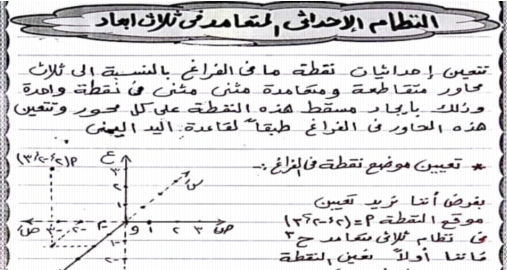 النظام الإحداثى المتعامد فى ثلاث ابعاد
تتعين إحداثيات نقطة ما فى الفراغ بالنسبة الى ثلاث
محاور متقاطعة و متعامدة مثنى مثنى فى نقطة واحدة
وذلك بإيجاد مسقط هذه النقطة على كل محور وتتعين
هذه المحاور فى الفراغ طبقاً لقاعدة اليد اليمنى
* تعيين موضع نقطة فى الفراغ :-
بفرض أننا نريد تعيين
موقع النقطة
فى نظام ثلاثى متعامد ح٣
فاننا أولاً نعين النقطة
ع
س
ص
و
١ ٢ ٣